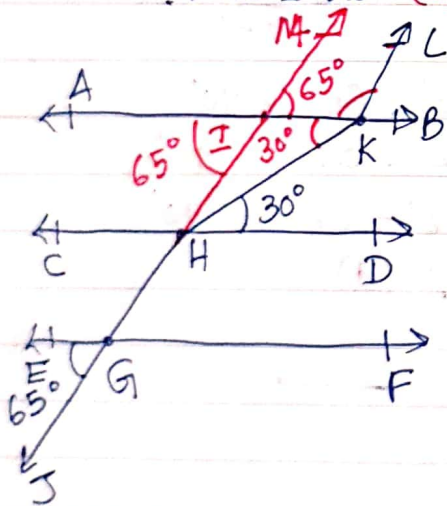 M
L
A
65°
B
65°
I
30°
K
30°
C
H
D
E
G
F
65°
J